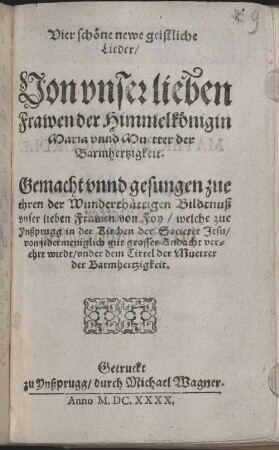 Vier schöne newe geistliche
Lieder/
Von vnser lieben
Frawen der Himmelkönigin
Maria vnnd Mutter der
Barmhertzigkeit.
Gemacht vnnd gesungen zue
ehren der Wunderthättigen Bildtnuß
vnser lieben Frawen von Foy / welche zue
Ynßprugg in der Kirchen der Societet Jesu/
von jedermeniglich mit grosser Andacht ver-
ehrt wirdt/vnder dem Tittel der Muetter
der Barmhertzigkeit.
Getruckt
zu Ynßprugg/durch Michael Wagner.
Anno M. DC. XXXX.